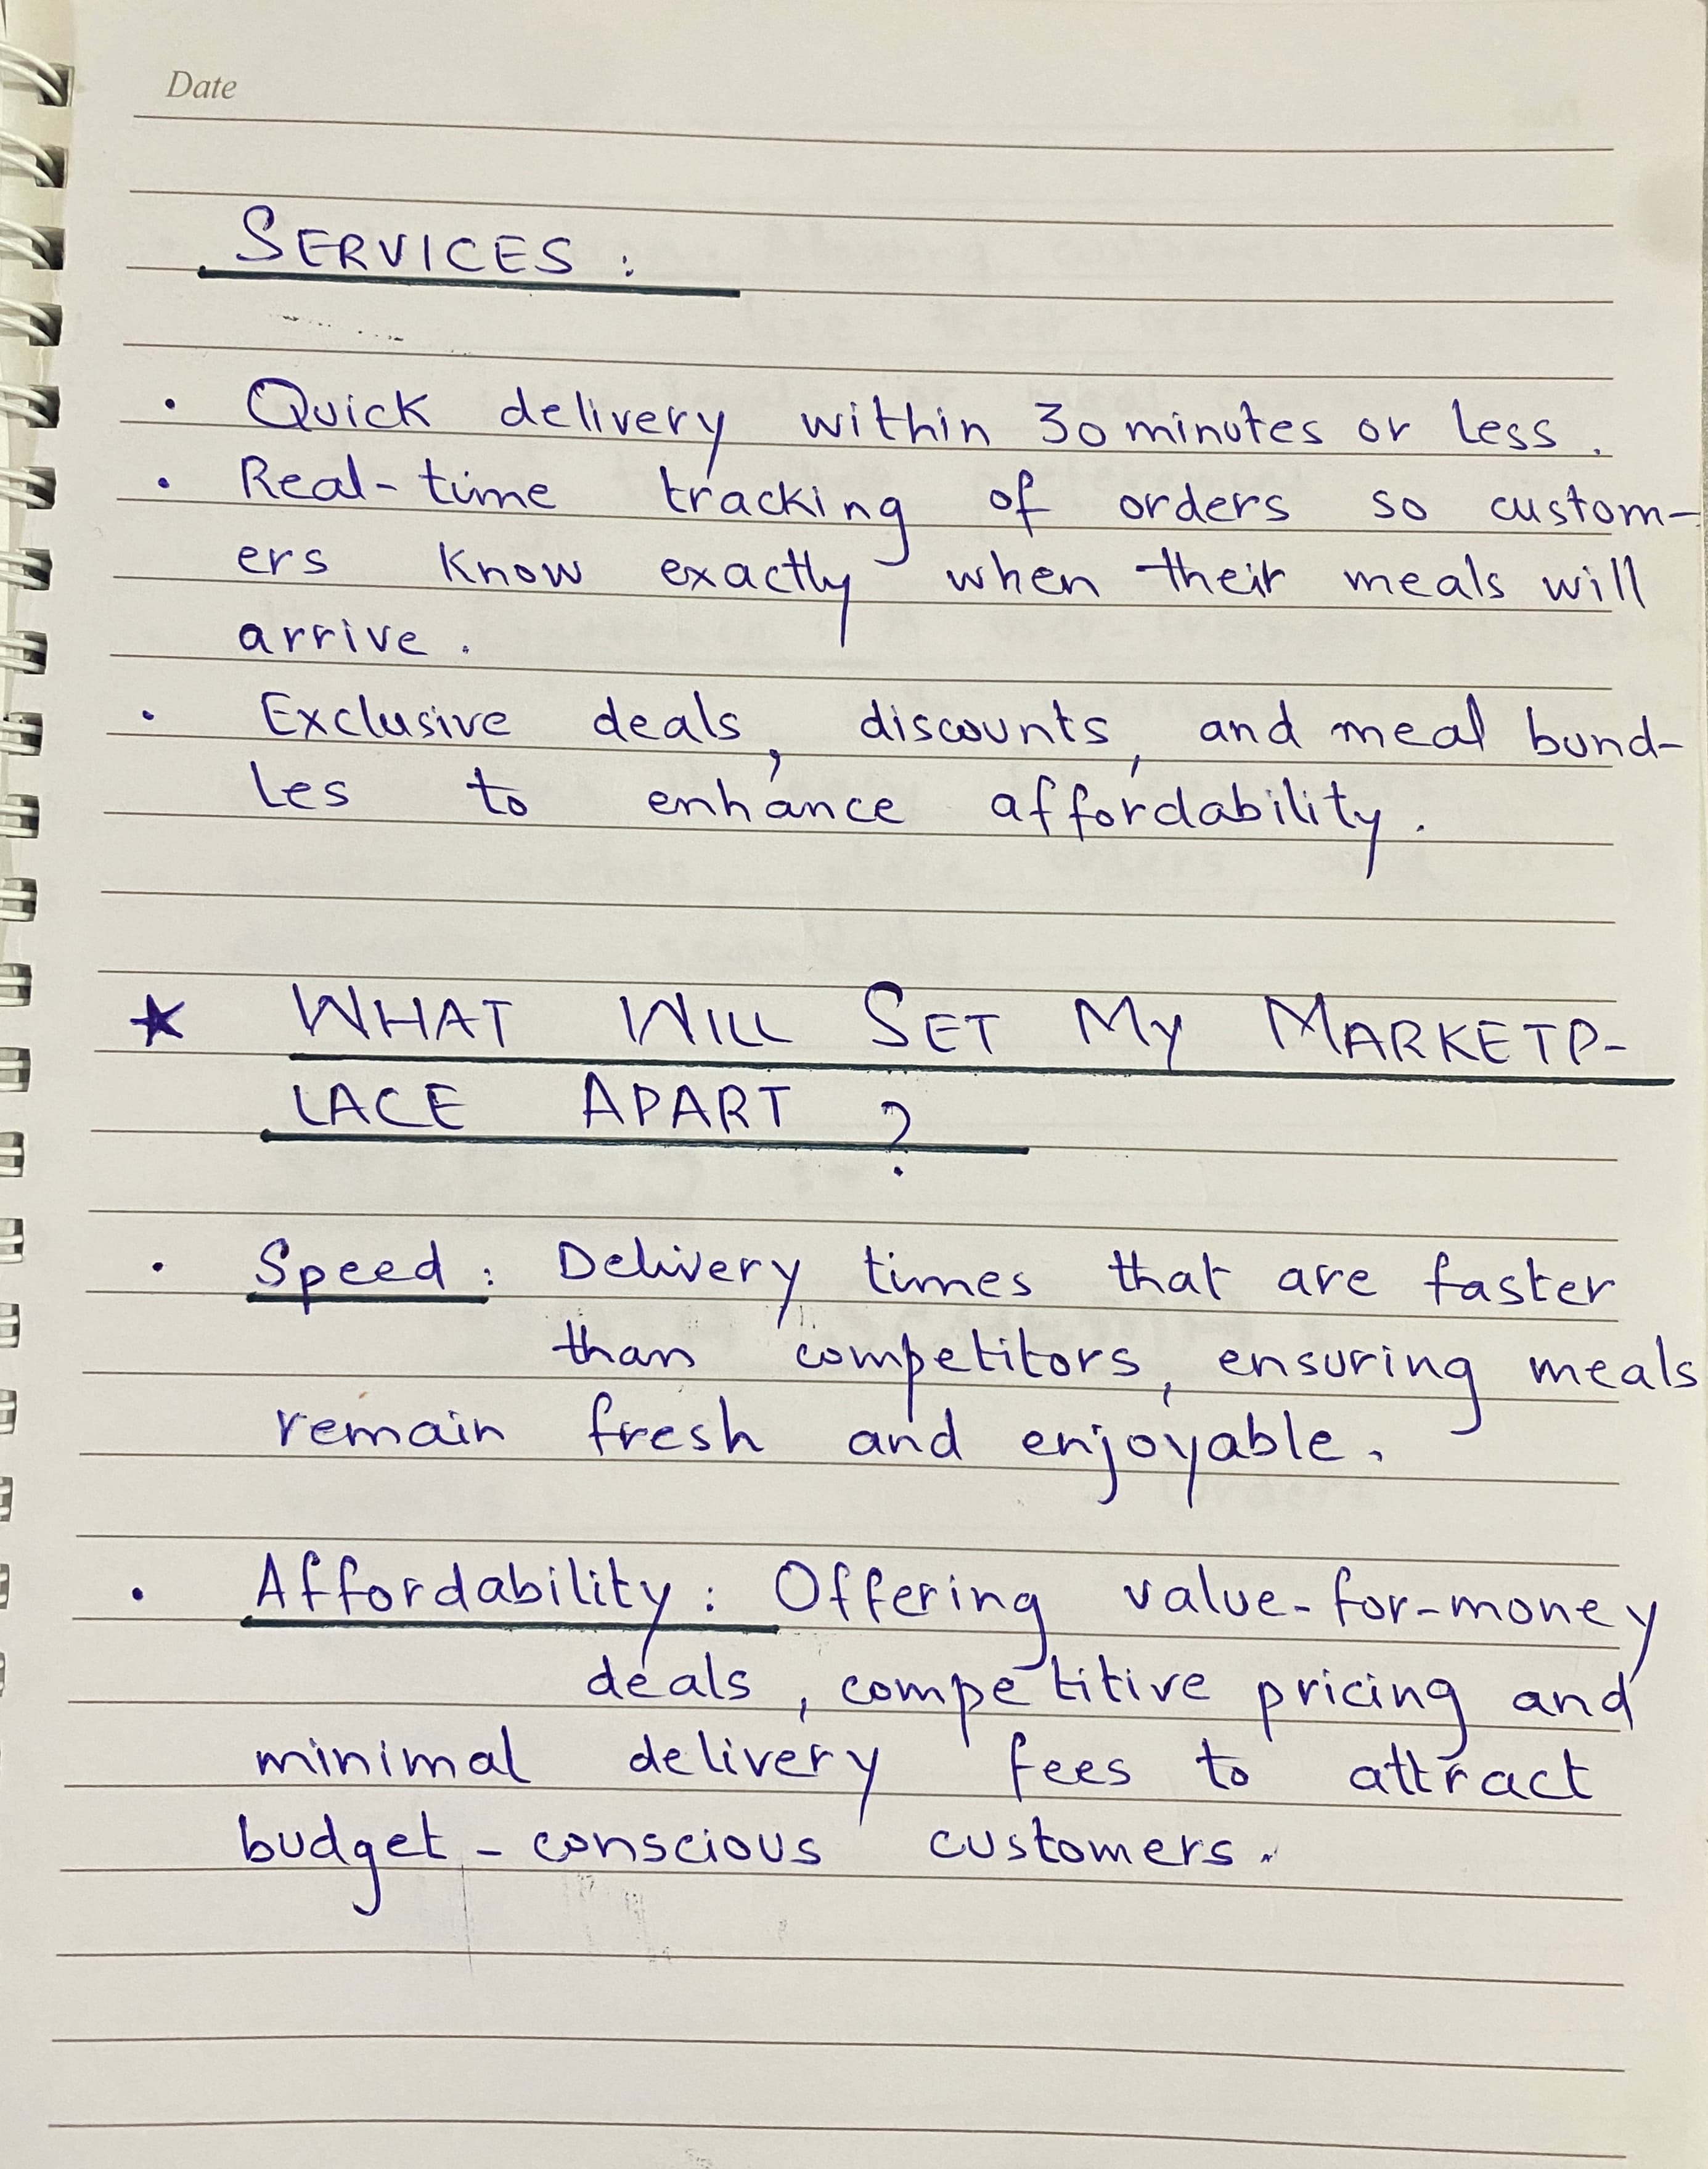 Date
SERVICES :
• Quick delivery within 30 minutes or less.
• Real-time tracking of orders so custom-
ers know exactly when their meals will
arrive.
• Exclusive deals, discounts, and meal bund-
les to enhance affordability.
★ WHAT WILL SET MY MARKETP-
LACE APART ?
• Speed : Delivery times that are faster
than competitors, ensuring meals
remain fresh and enjoyable.
• Affordability : Offering value-for-money
deals, competitive pricing and
minimal delivery fees to attract
budget-conscious customers.